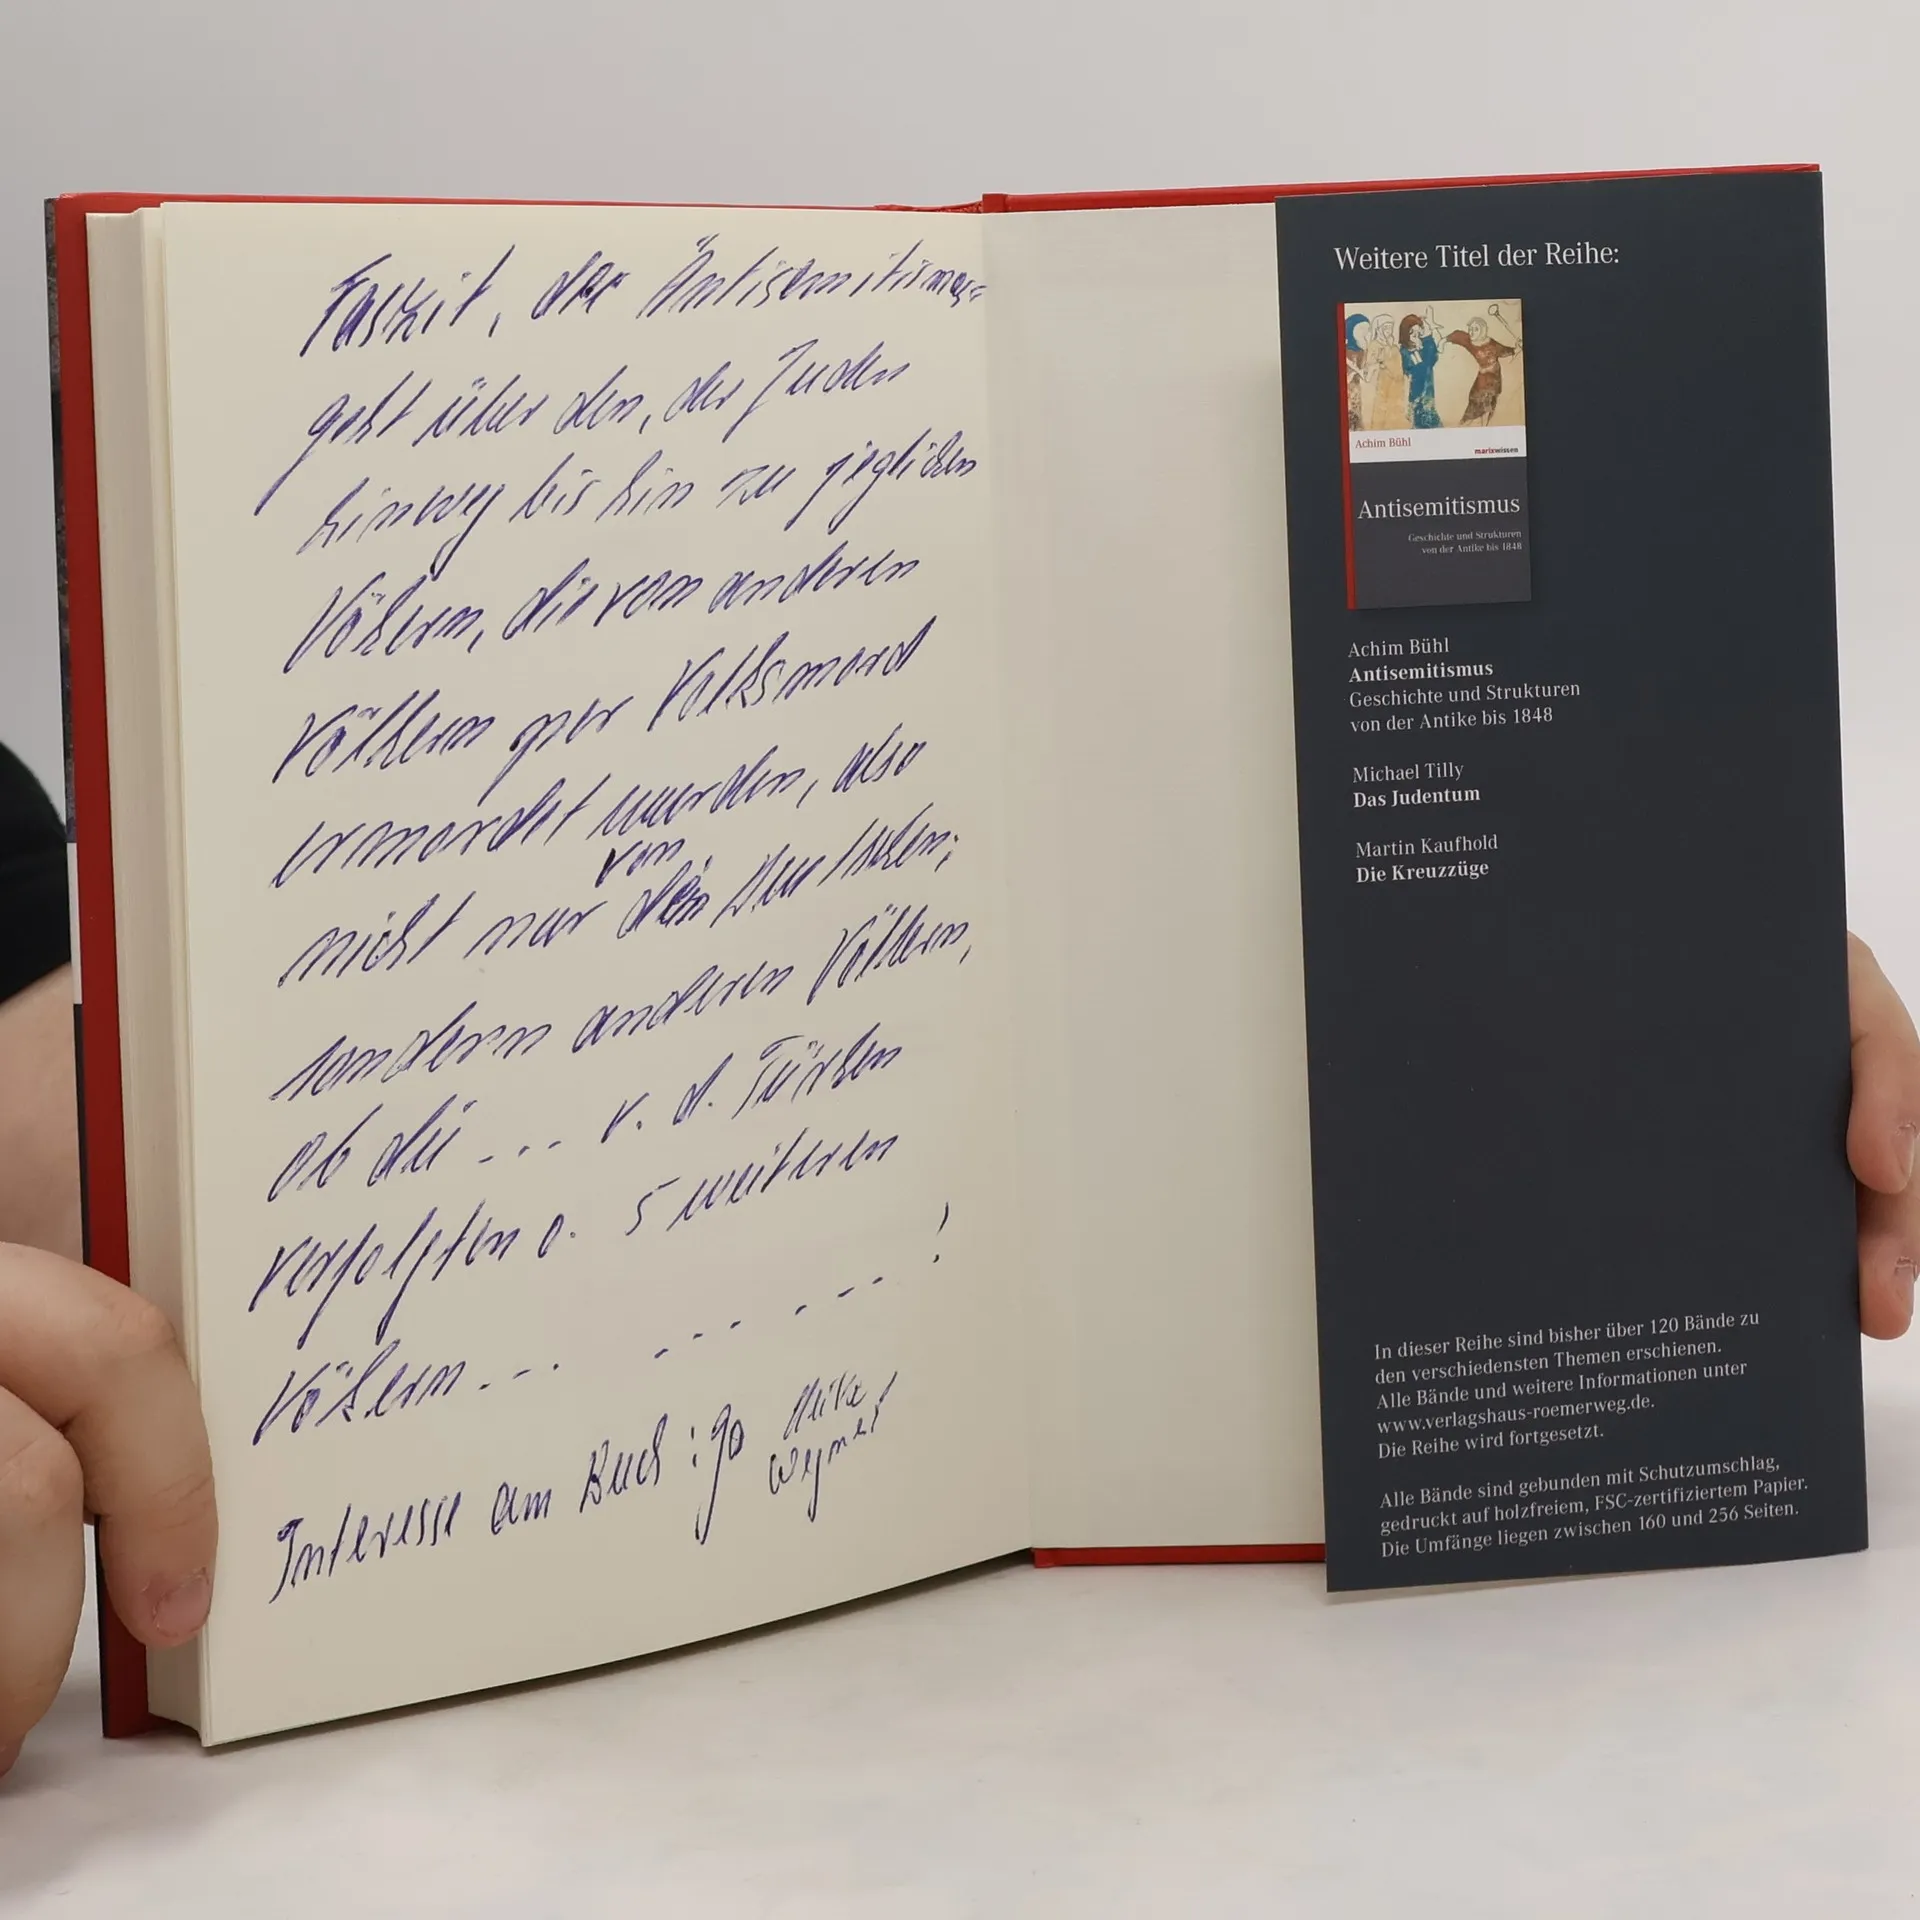 Faszit, der Äntisemitismus=
geht über den, der Juden
hinweg bis hin zu jeglichen
Völkern, die von anderen
Völkern per Volksmord
ermordet wurden, also
von
nicht nur den Deutschen;
sondern anderen Völkern,
ob die ... v. d. Türken
verfolgten o. 5 weiteren
Völkern ... ... ... !
Interesse am Buch : go
Weitere Titel der Reihe:
Achim Bühl
marixwissen
Antisemitismus
Geschichte und Strukturen
von der Antike bis 1848
Achim Bühl
Antisemitismus
Geschichte und Strukturen
von der Antike bis 1848
Michael Tilly
Das Judentum
Martin Kaufhold
Die Kreuzzüge
In dieser Reihe sind bisher über 120 Bände zu
den verschiedensten Themen erschienen.
Alle Bände und weitere Informationen unter
www.verlagshaus-roemerweg.de.
Die Reihe wird fortgesetzt.
Alle Bände sind gebunden mit Schutzumschlag,
gedruckt auf holzfreiem, FSC-zertifiziertem Papier.
Die Umfänge liegen zwischen 160 und 256 Seiten.